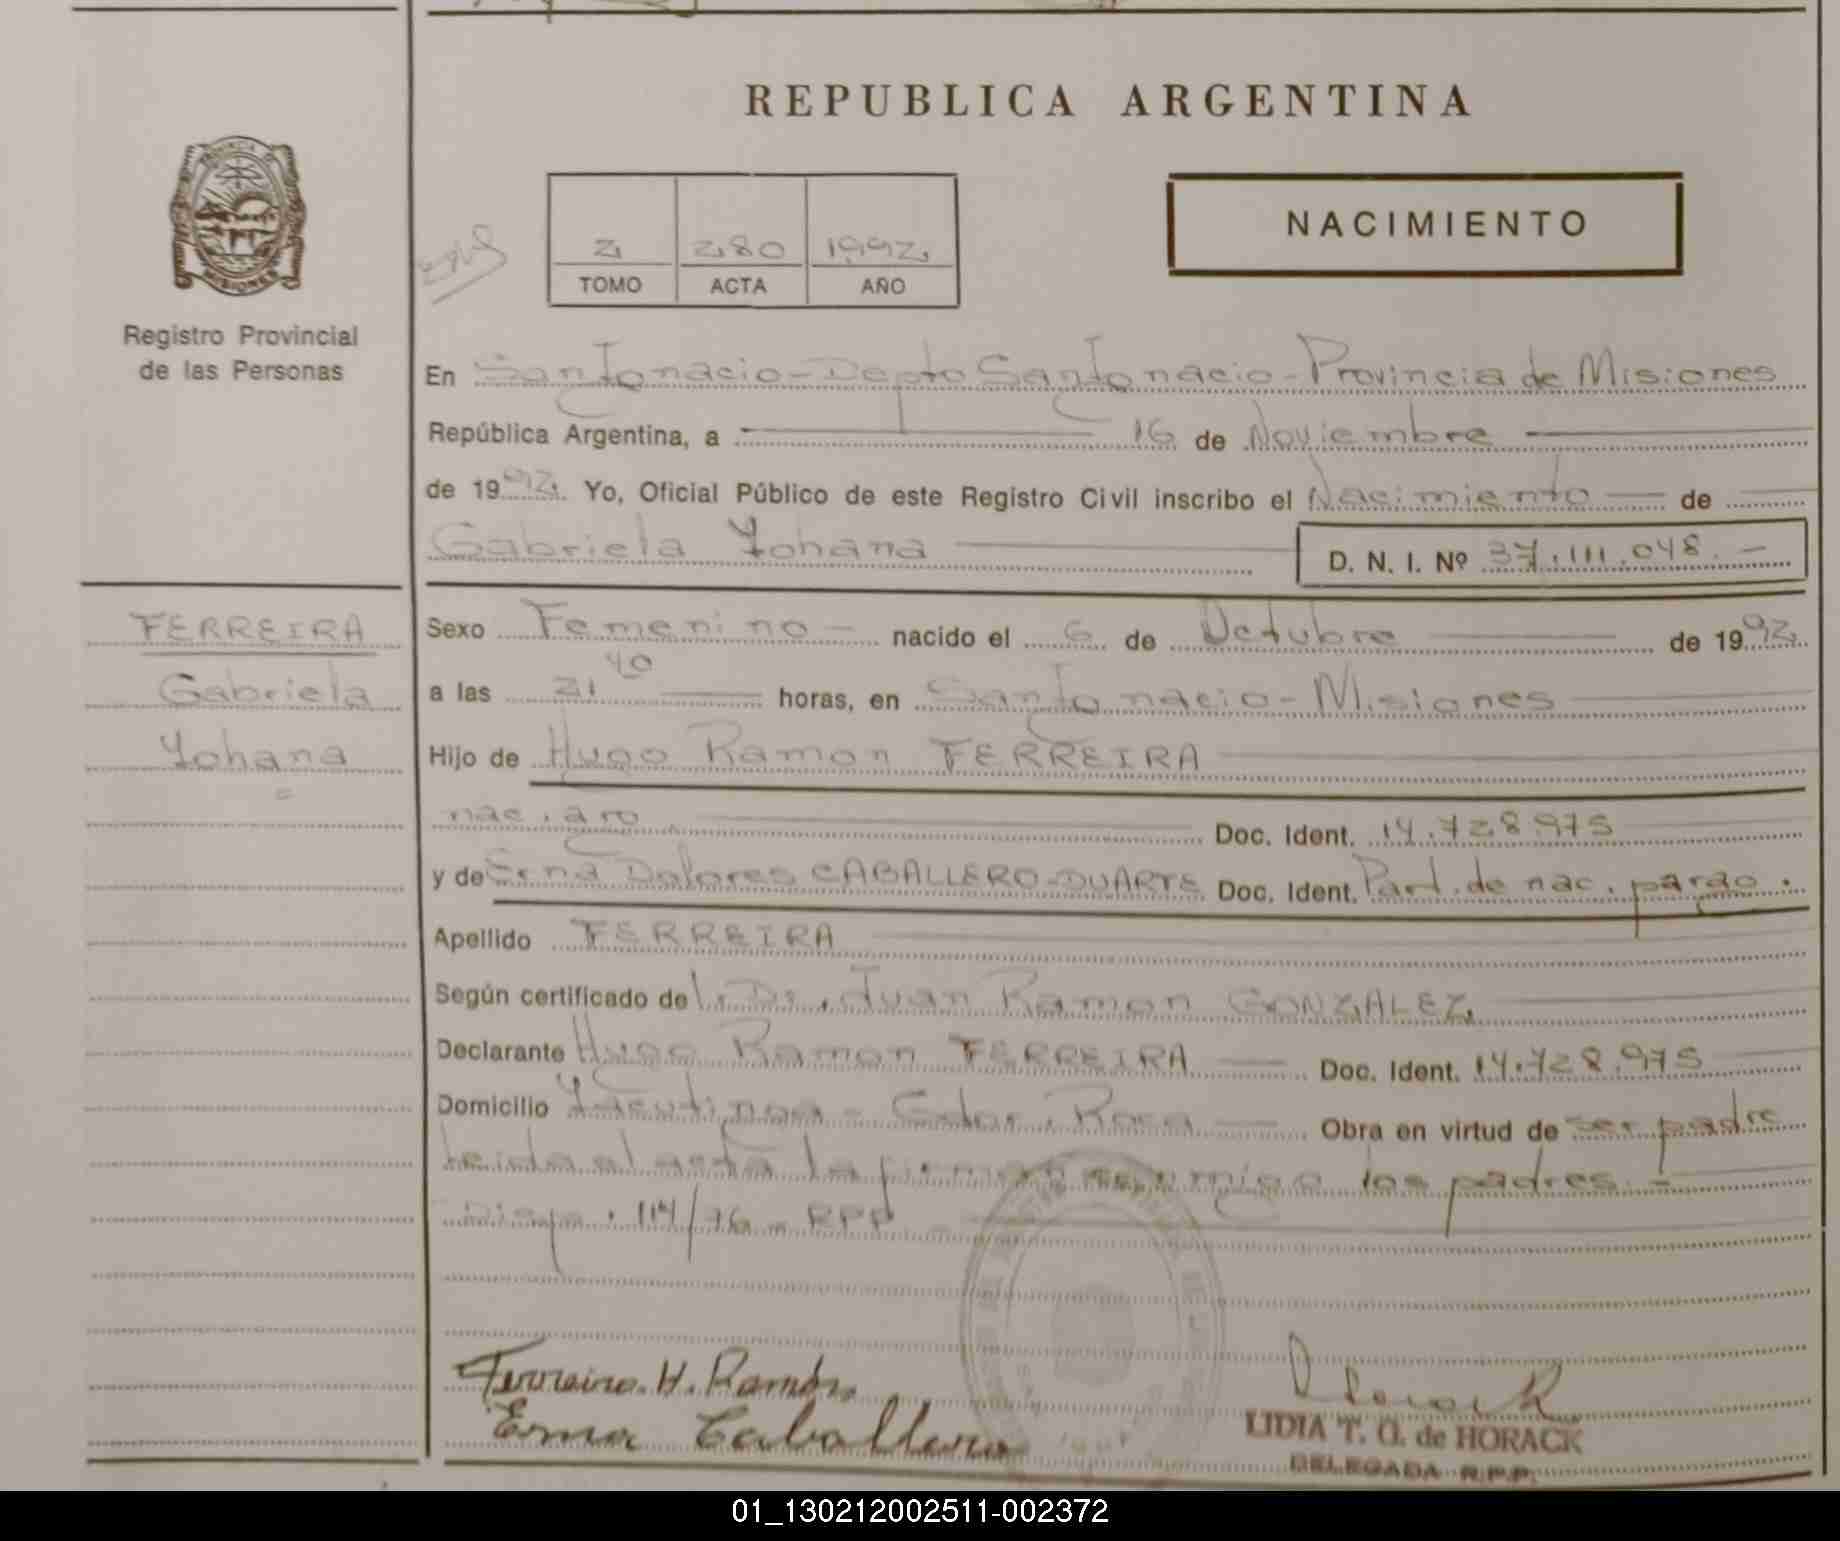 REPUBLICA ARGENTINA
PROVINCIA DE
MISIONES
Registro Provincial
de las Personas
2 280 1992
TOMO ACTA AÑO
NACIMIENTO
En San Ignacio - Depto San Ignacio - Provincia de Misiones
República Argentina, a 16 de Noviembre
de 1992. Yo, Oficial Público de este Registro Civil inscribo el Nacimiento de
Gabriela Yohana D. N. I. Nº 37.111.048.-
FERREIRA
Gabriela
Yohana
Sexo Femenino nacido el 6 de Octubre de 1992
a las 21 40 horas, en San Ignacio - Misiones
Hijo de Hugo Ramon FERREIRA
nac. arg Doc. Ident. 14.728.975
y de Erna Dolores CABALLERO-DUARTE Doc. Ident. Part. de nac. parag.
Apellido FERREIRA
Según certificado del Dr. Juan Ramon GONZALEZ
Declarante Hugo Ramon FERREIRA Doc. Ident. 14.728.975
Domicilio Yacutinga - Gdor. Roca Obra en virtud de ser padre
Leida el acta la firman conmigo los padres.-
Disp. 114/76 - RPP
Ferreira. H. Ramón
Erna Caballero
LIDIA T. O. de HORACK
DELEGADA R.P.P.
01_130212002511-002372